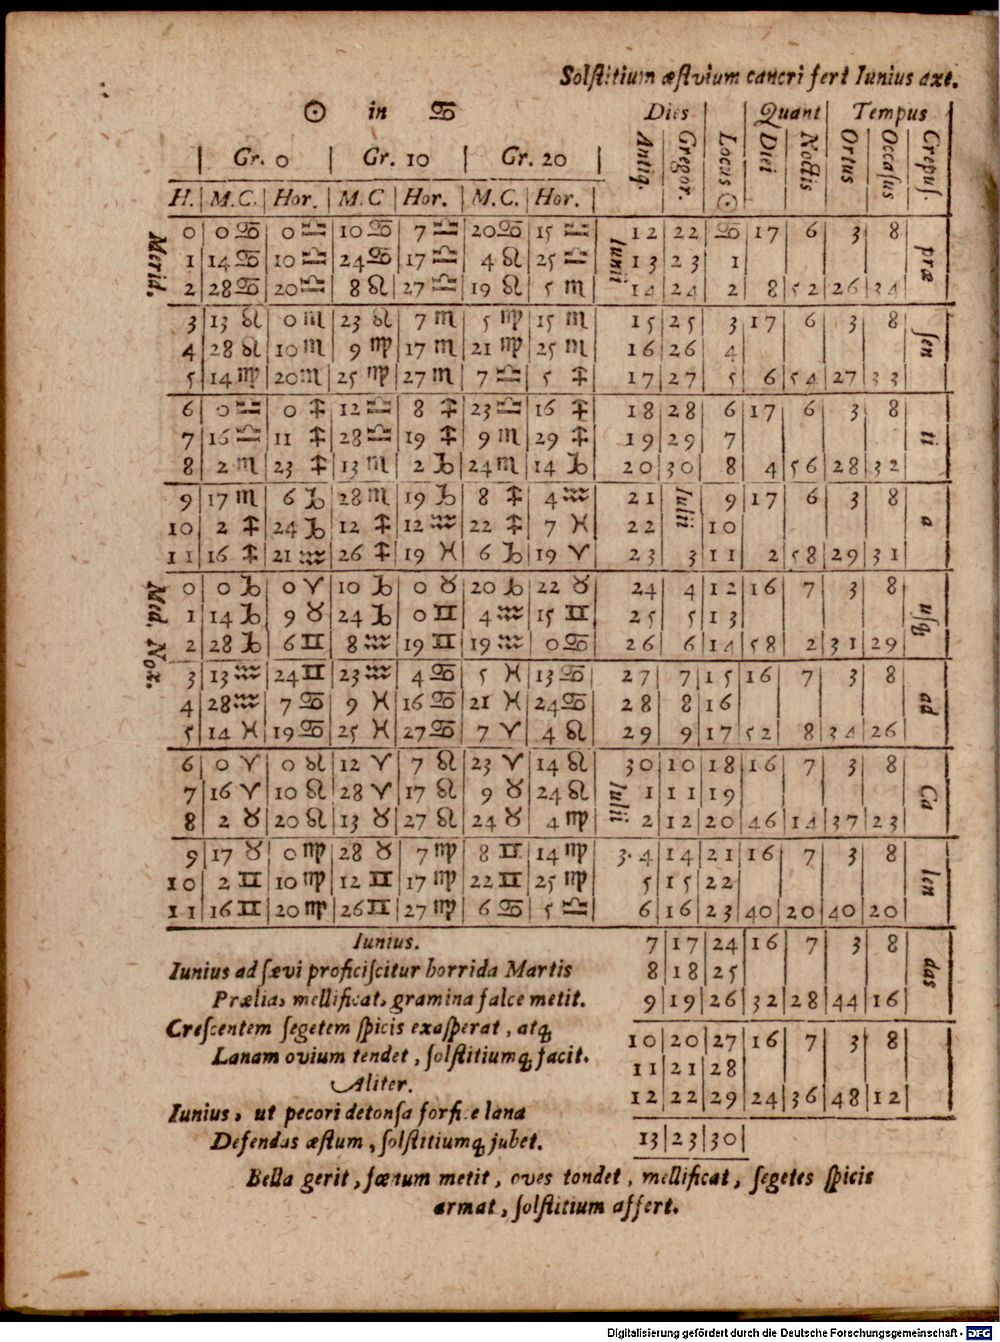 Solſtitium æſtvium cancri fert Iunius axe.
☉ in ♋
Dies | Quant | Tempus
Gr. 0 | Gr. 10 | Gr. 20
Antiq. | Gregor. | Locus ☉ | Diei | Noctis | Ortus | Occaſus | Crepuſ.
H. | M.C. | Hor. | M.C | Hor. | M.C. | Hor.
Merid.
0 | 0 ♋ | 0 ♎ | 10 ♋ | 7 ♎ | 20 ♋ | 15 ♎ | Iunii | 12 | 22 | ♋ | 17 | 6 | 3 | 8 | præ
1 | 14 ♋ | 10 ♎ | 24 ♋ | 17 ♎ | 4 ♌ | 25 ♎ | 13 | 23 | 1
2 | 28 ♋ | 20 ♎ | 8 ♌ | 27 ♎ | 19 ♌ | 5 ♏ | 14 | 24 | 2 | 8 | 52 | 26 | 34
3 | 13 ♌ | 0 ♏ | 23 ♌ | 7 ♏ | 5 ♍ | 15 ♏ | 15 | 25 | 3 | 17 | 6 | 3 | 8 | ſen
4 | 28 ♌ | 10 ♏ | 9 ♍ | 17 ♏ | 21 ♍ | 25 ♏ | 16 | 26 | 4
5 | 14 ♍ | 20 ♏ | 25 ♍ | 27 ♏ | 7 ♎ | 5 ♐ | 17 | 27 | 5 | 6 | 54 | 27 | 33
6 | 0 ♎ | 0 ♐ | 12 ♎ | 8 ♐ | 23 ♎ | 16 ♐ | 18 | 28 | 6 | 17 | 6 | 3 | 8 | ti
7 | 16 ♎ | 11 ♐ | 28 ♎ | 19 ♐ | 9 ♏ | 29 ♐ | 19 | 29 | 7
8 | 2 ♏ | 23 ♐ | 13 ♏ | 2 ♑ | 24 ♏ | 14 ♑ | 20 | 30 | 8 | 4 | 56 | 28 | 32
9 | 17 ♏ | 6 ♑ | 28 ♏ | 19 ♑ | 8 ♐ | 4 ♒ | 21 | Iulii | 9 | 17 | 6 | 3 | 8 | a
10 | 2 ♐ | 24 ♑ | 12 ♐ | 12 ♒ | 22 ♐ | 7 ♓ | 22 | 10
11 | 16 ♐ | 21 ♒ | 26 ♐ | 19 ♓ | 6 ♑ | 19 ♈ | 23 | 3 | 11 | 2 | 58 | 29 | 31
Med. Nox.
0 | 0 ♑ | 0 ♈ | 10 ♑ | 0 ♉ | 20 ♑ | 22 ♉ | 24 | 4 | 12 | 16 | 7 | 3 | 8 | uſq
1 | 14 ♑ | 9 ♉ | 24 ♑ | 0 ♊ | 4 ♒ | 15 ♊ | 25 | 5 | 13
2 | 28 ♑ | 6 ♊ | 8 ♒ | 19 ♊ | 19 ♒ | 0 ♋ | 26 | 6 | 14 | 58 | 2 | 31 | 29
3 | 13 ♒ | 24 ♊ | 23 ♒ | 4 ♋ | 5 ♓ | 13 ♋ | 27 | 7 | 15 | 16 | 7 | 3 | 8 | ad
4 | 28 ♒ | 7 ♋ | 9 ♓ | 16 ♋ | 21 ♓ | 24 ♋ | 28 | 8 | 16
5 | 14 ♓ | 19 ♋ | 25 ♓ | 27 ♋ | 7 ♈ | 4 ♌ | 29 | 9 | 17 | 52 | 8 | 34 | 26
6 | 0 ♈ | 0 ♌ | 12 ♈ | 7 ♌ | 23 ♈ | 14 ♌ | 30 | 10 | 18 | 16 | 7 | 3 | 8 | Ca
7 | 16 ♈ | 10 ♌ | 28 ♈ | 17 ♌ | 9 ♉ | 24 ♌ | Iulii | 1 | 11 | 19
8 | 2 ♉ | 20 ♌ | 13 ♉ | 27 ♌ | 24 ♉ | 4 ♍ | 2 | 12 | 20 | 46 | 14 | 37 | 23
9 | 17 ♉ | 0 ♍ | 28 ♉ | 7 ♍ | 8 ♊ | 14 ♍ | 3. 4 | 14 | 21 | 16 | 7 | 3 | 8 | len
10 | 2 ♊ | 10 ♍ | 12 ♊ | 17 ♍ | 22 ♊ | 25 ♍ | 5 | 15 | 22
11 | 16 ♊ | 20 ♍ | 26 ♊ | 27 ♍ | 6 ♋ | 5 ♎ | 6 | 16 | 23 | 40 | 20 | 40 | 20
7 | 17 | 24 | 16 | 7 | 3 | 8 | das
8 | 18 | 25
9 | 19 | 26 | 32 | 28 | 44 | 16
10 | 20 | 27 | 16 | 7 | 3 | 8
11 | 21 | 28
12 | 22 | 29 | 24 | 36 | 48 | 12
13 | 23 | 30
Iunius.
Iunius ad ſævi proficiſcitur horrida Martis
Prælia, mellificat, gramina falce metit.
Creſcentem ſegetem ſpicis exaſperat, atq
Lanam ovium tendet, ſolſtitiumq facit.
Aliter.
Iunius, ut pecori detonſa forfice lana
Defendas æſtum, ſolſtitiumq jubet.
Bella gerit, fœnum metit, oves tondet, mellificat, ſegetes ſpicis
armat, ſolſtitium affert.
Digitalisierung gefördert durch die Deutsche Forschungsgemeinschaft - DFG